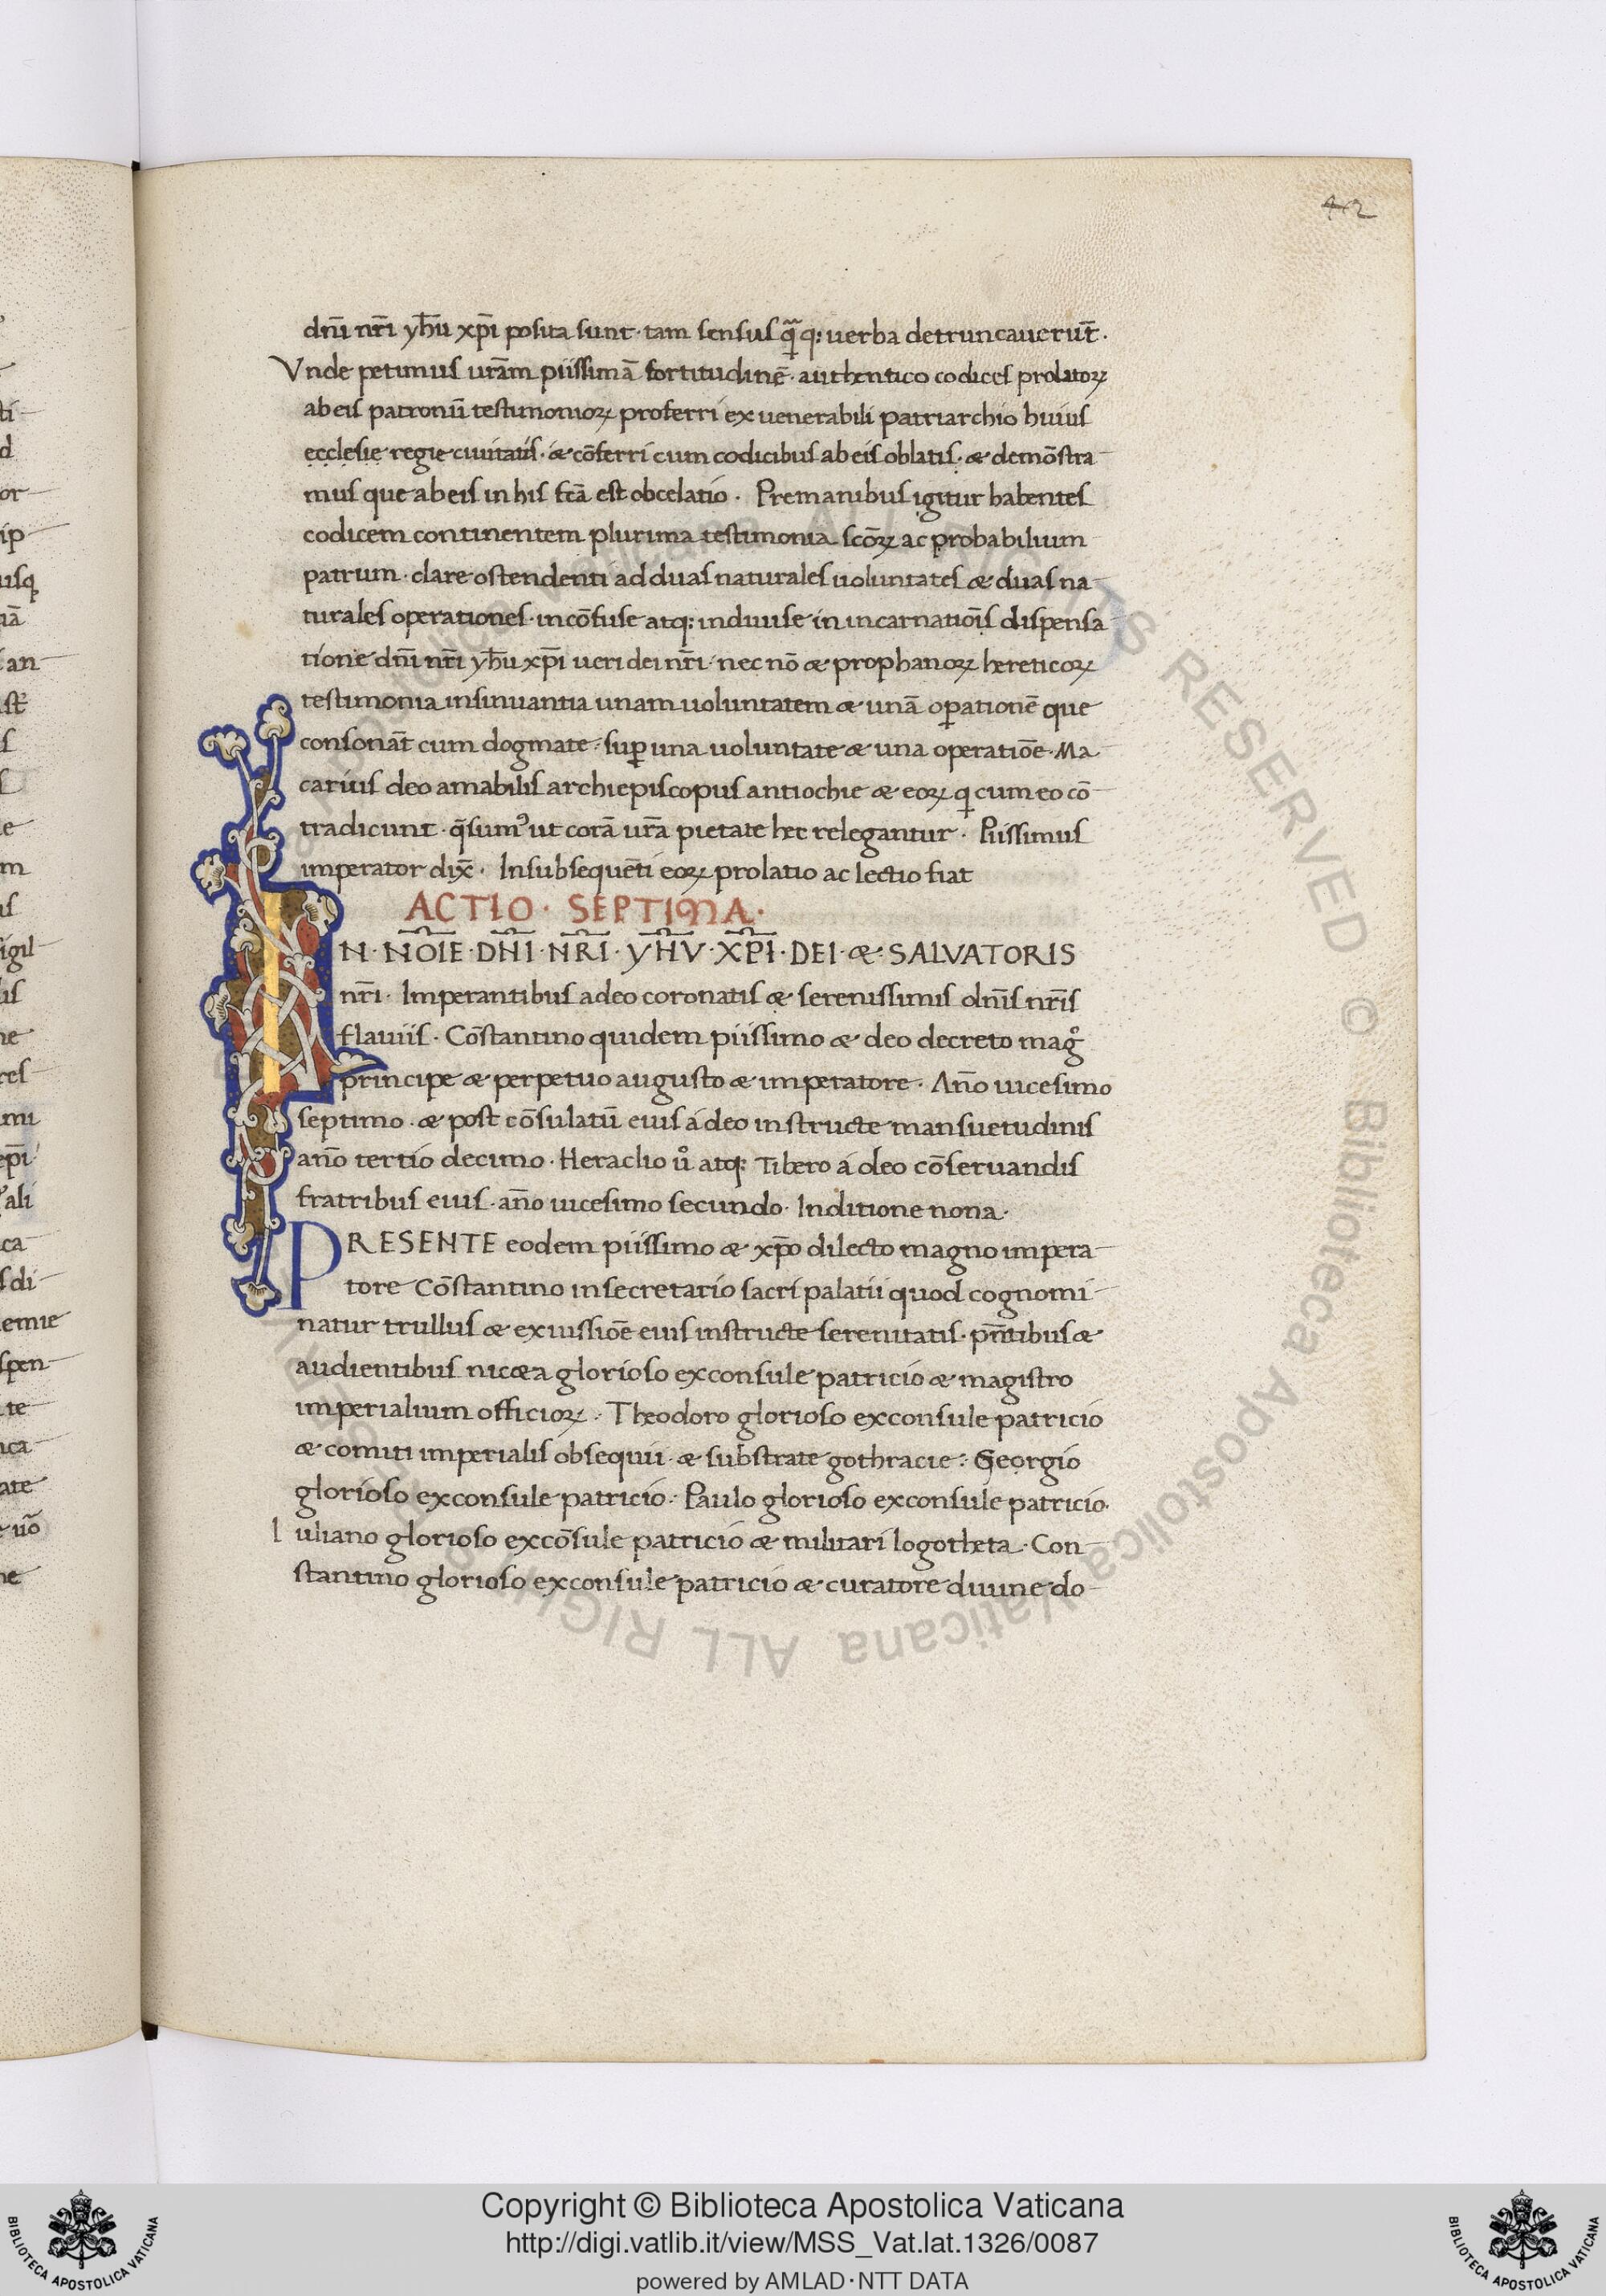 42
dn̄i nr̄i yh̄u xp̄i posita sunt · tam sensus q̄ꝗ: uerba detruncauerut̄ ·
Vnde petimus urām piissimā fortitudinē · authentico codices prolatoꝝ
ab eis patronū testimonioꝝ proferri ex uenerabili patriarchio huius
ecclesie regie ciuitatis · & cōferri cum codicibus ab eis oblatis · & demōstra
mus que ab eis in his fcā est obcelatio · Premanibus igitur habentes
codicem continentem plurima testimonia scōꝝ ac probabilium
patrum · clare ostendenti ad duas naturales uoluntates & duas na
turales operationes · incōfuse atq: indiuise in incarnatiōis dispensa
tione dn̄i nr̄i yh̄u xp̄i ueri dei nr̄i · nec nō & prophanoꝝ hereticoꝝ
testimonia insinuantia unam uoluntatem & unā oꝑationē que
consonāt cum dogmate · suꝑ una uoluntate & una operatiōe · Ma
carius deo amabilis archiepiscopus antiochie & eoꝝ q cum eo cō
tradicunt · q̄sumꝰ ut corā urā pietate hec relegantur · Piissimus
imperator dix̄ · In subsequēti eoꝝ prolatio ac lectio fiat
ACTIO · SEPTIMA ·
IN · NOĪE · DN̄I · NR̄I · YH̄V · XP̄I · DEI · & · SALVATORIS
nr̄i · Imperantibus a deo coronatis & serenissimis dn̄is nr̄is
flauiis · Cōstantino quidem piissimo & deo decreto magͦ
principe & perpetuo augusto & imperatore · An̄o uicesimo
septimo · & post cōsulatū eius á deo instructe mansuetudinis
an̄o tertio decimo · Heraclio uͦ atq: Tiberio á deo cōseruandis
fratribus eius · an̄o uicesimo secundo · Inditione nona ·
PRESENTE eodem piissimo & xp̄o dilecto magno impera
tore Cōstantino in secretario sacri palatii quod cognomi
natur trullus & ex iussiōe eius instructe serenitatis · pn̄tibus &
audientibus nicæa glorioso exconsule patricio & magistro
imperialium officioꝝ · Theodoro glorioso exconsule patricio
& comiti imperialis obsequii · & substrate gothracie · Georgio
glorioso exconsule patricio · Paulo glorioso exconsule patricio ·
Iuliano glorioso excōsule patricio & militari logotheta · Con
stantino glorioso exconsule patricio & curatore diuine do
Copyright © Biblioteca Apostolica Vaticana
http://digi.vatlib.it/view/MSS_Vat.lat.1326/0087
powered by AMLAD·NTT DATA